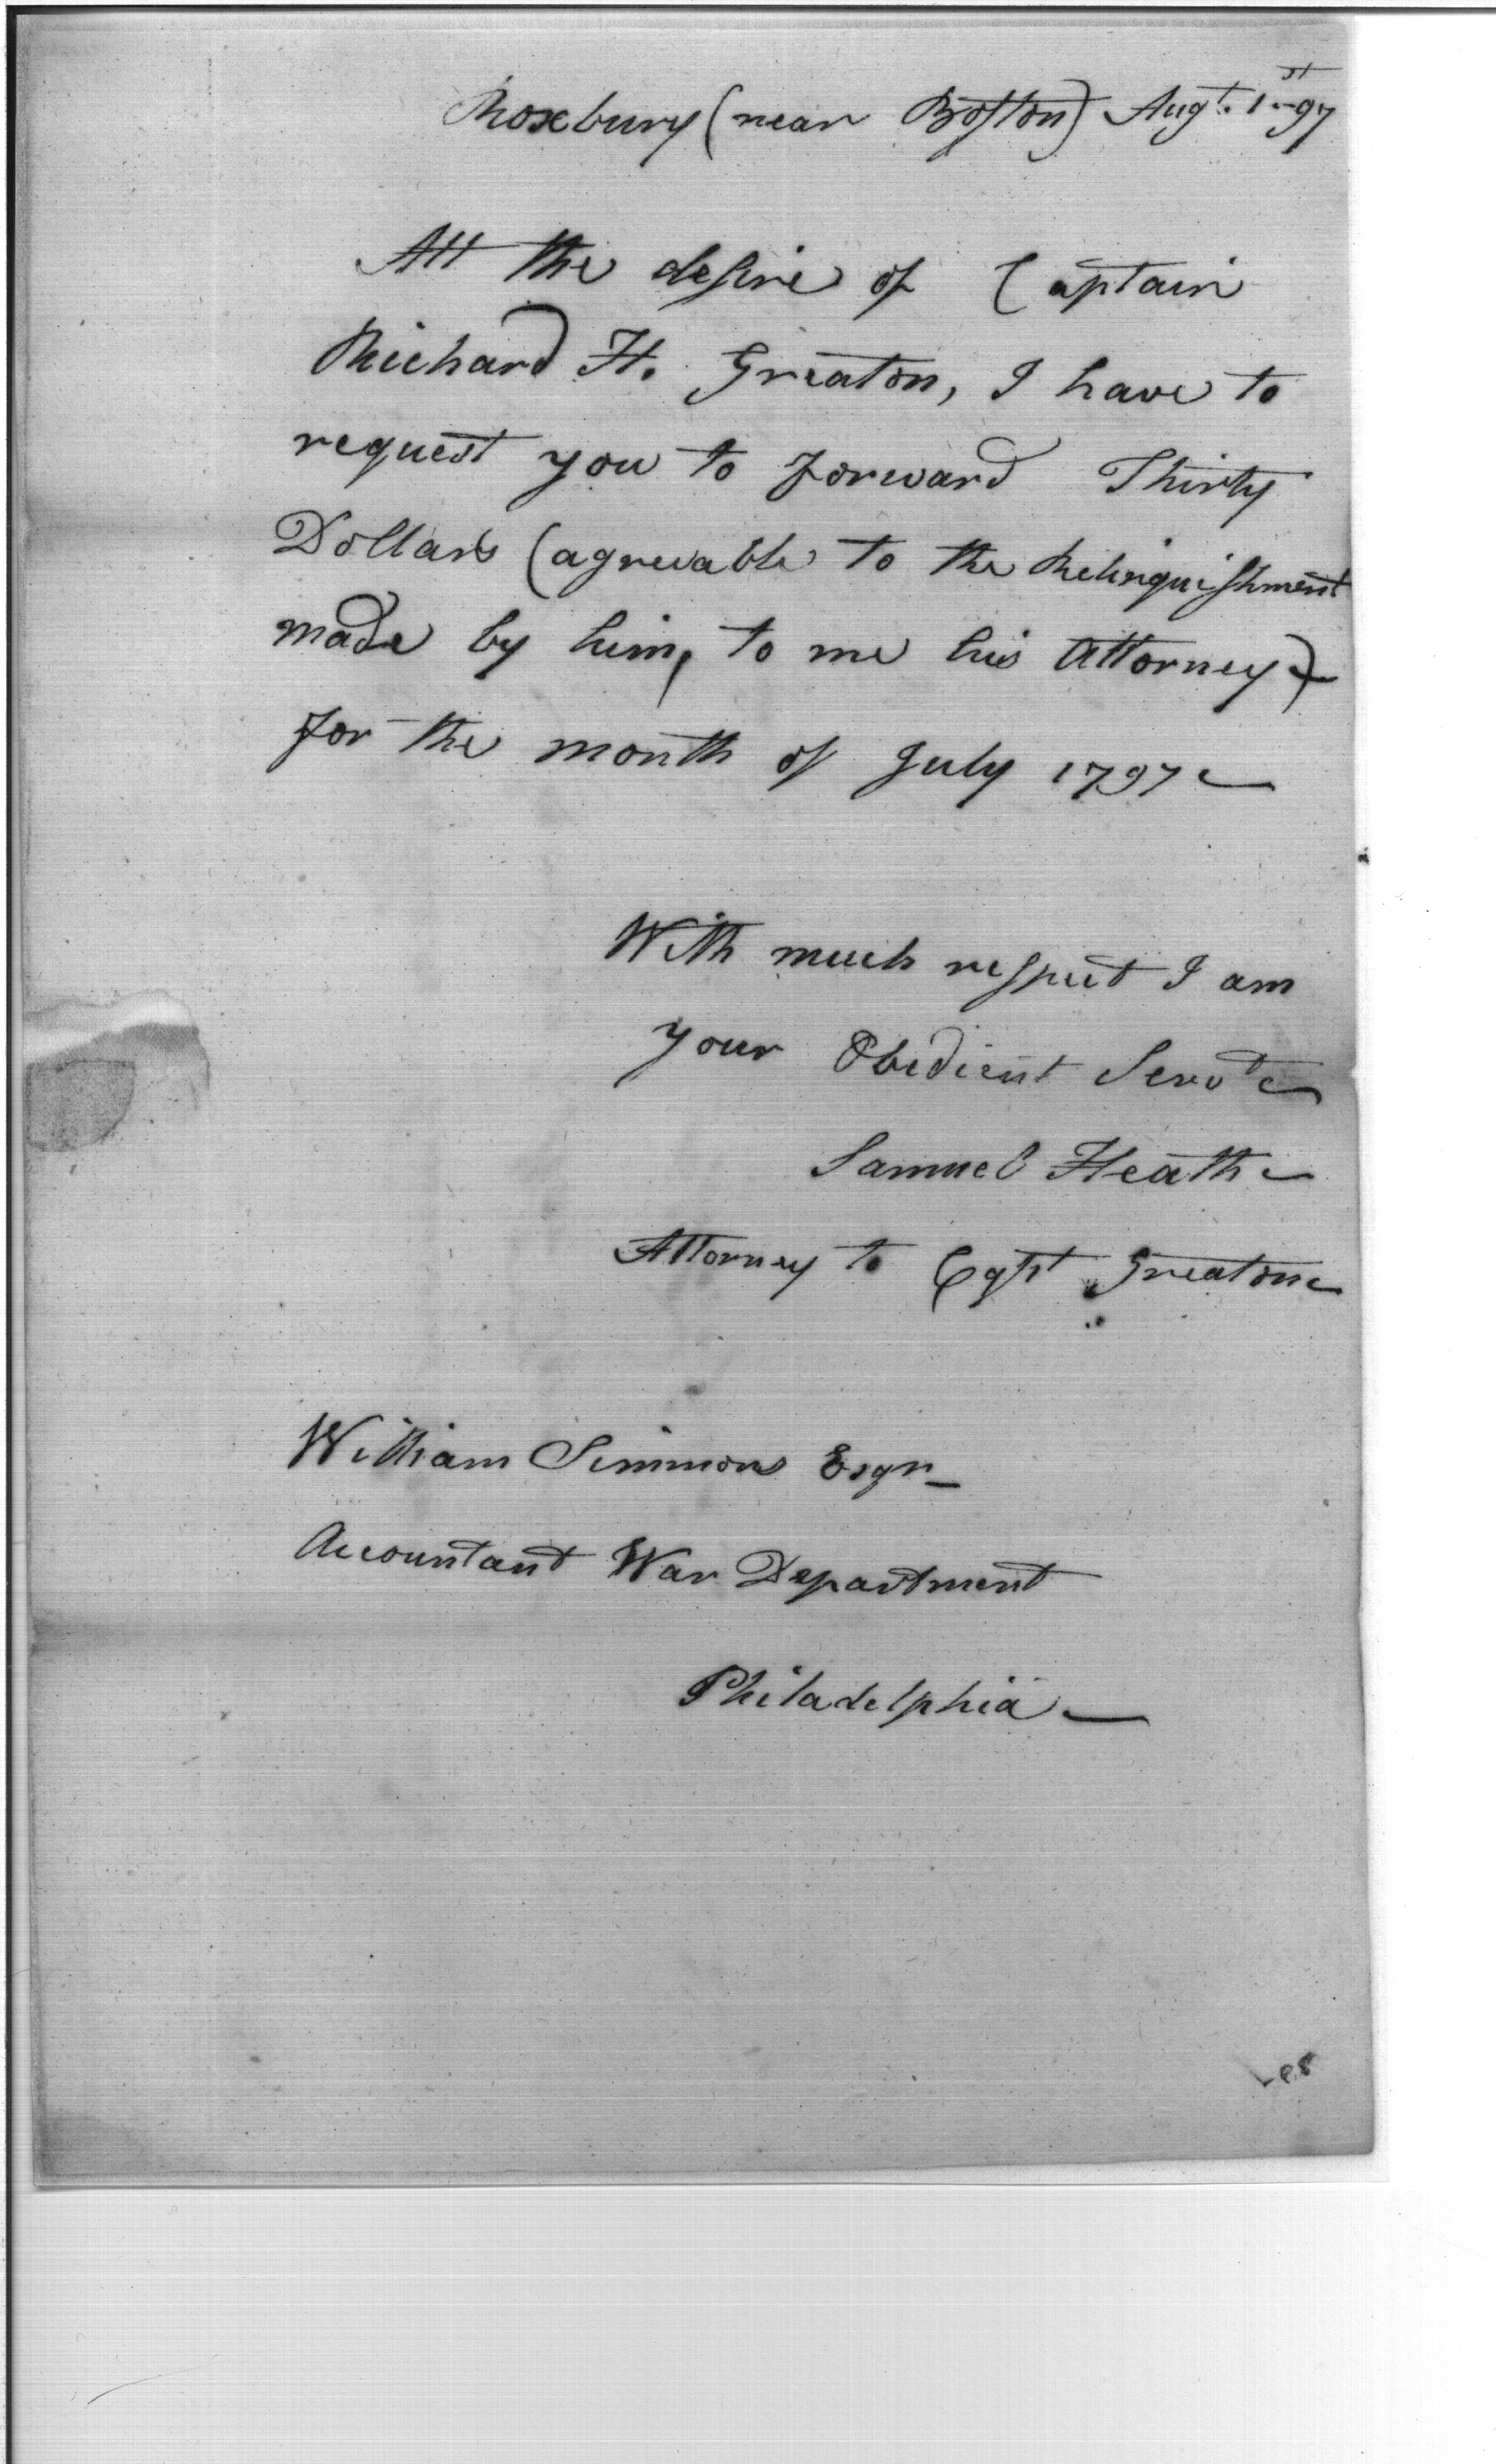 Roxbury (near Boston) Augt. 1st 97
Att the desire of Captain
Richard H. Greaton, I have to
request you to forward Thirty
Dollars (agreeable to the Relinquishment
made by him, to me his Attorney)
for the month of July 1797
With much respect I am
your Obedient Servt
Samuel Heath
Attorney to Capt Greaton
William Simmons Esqr
Accountant War Department
Philadelphia